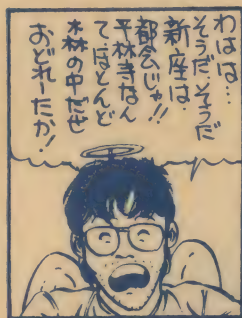 わはは…
そうだ、そうだ
新座は
都会じゃ!!
平林寺なん
てほとんど
森の中だぜ
おどれーたか!